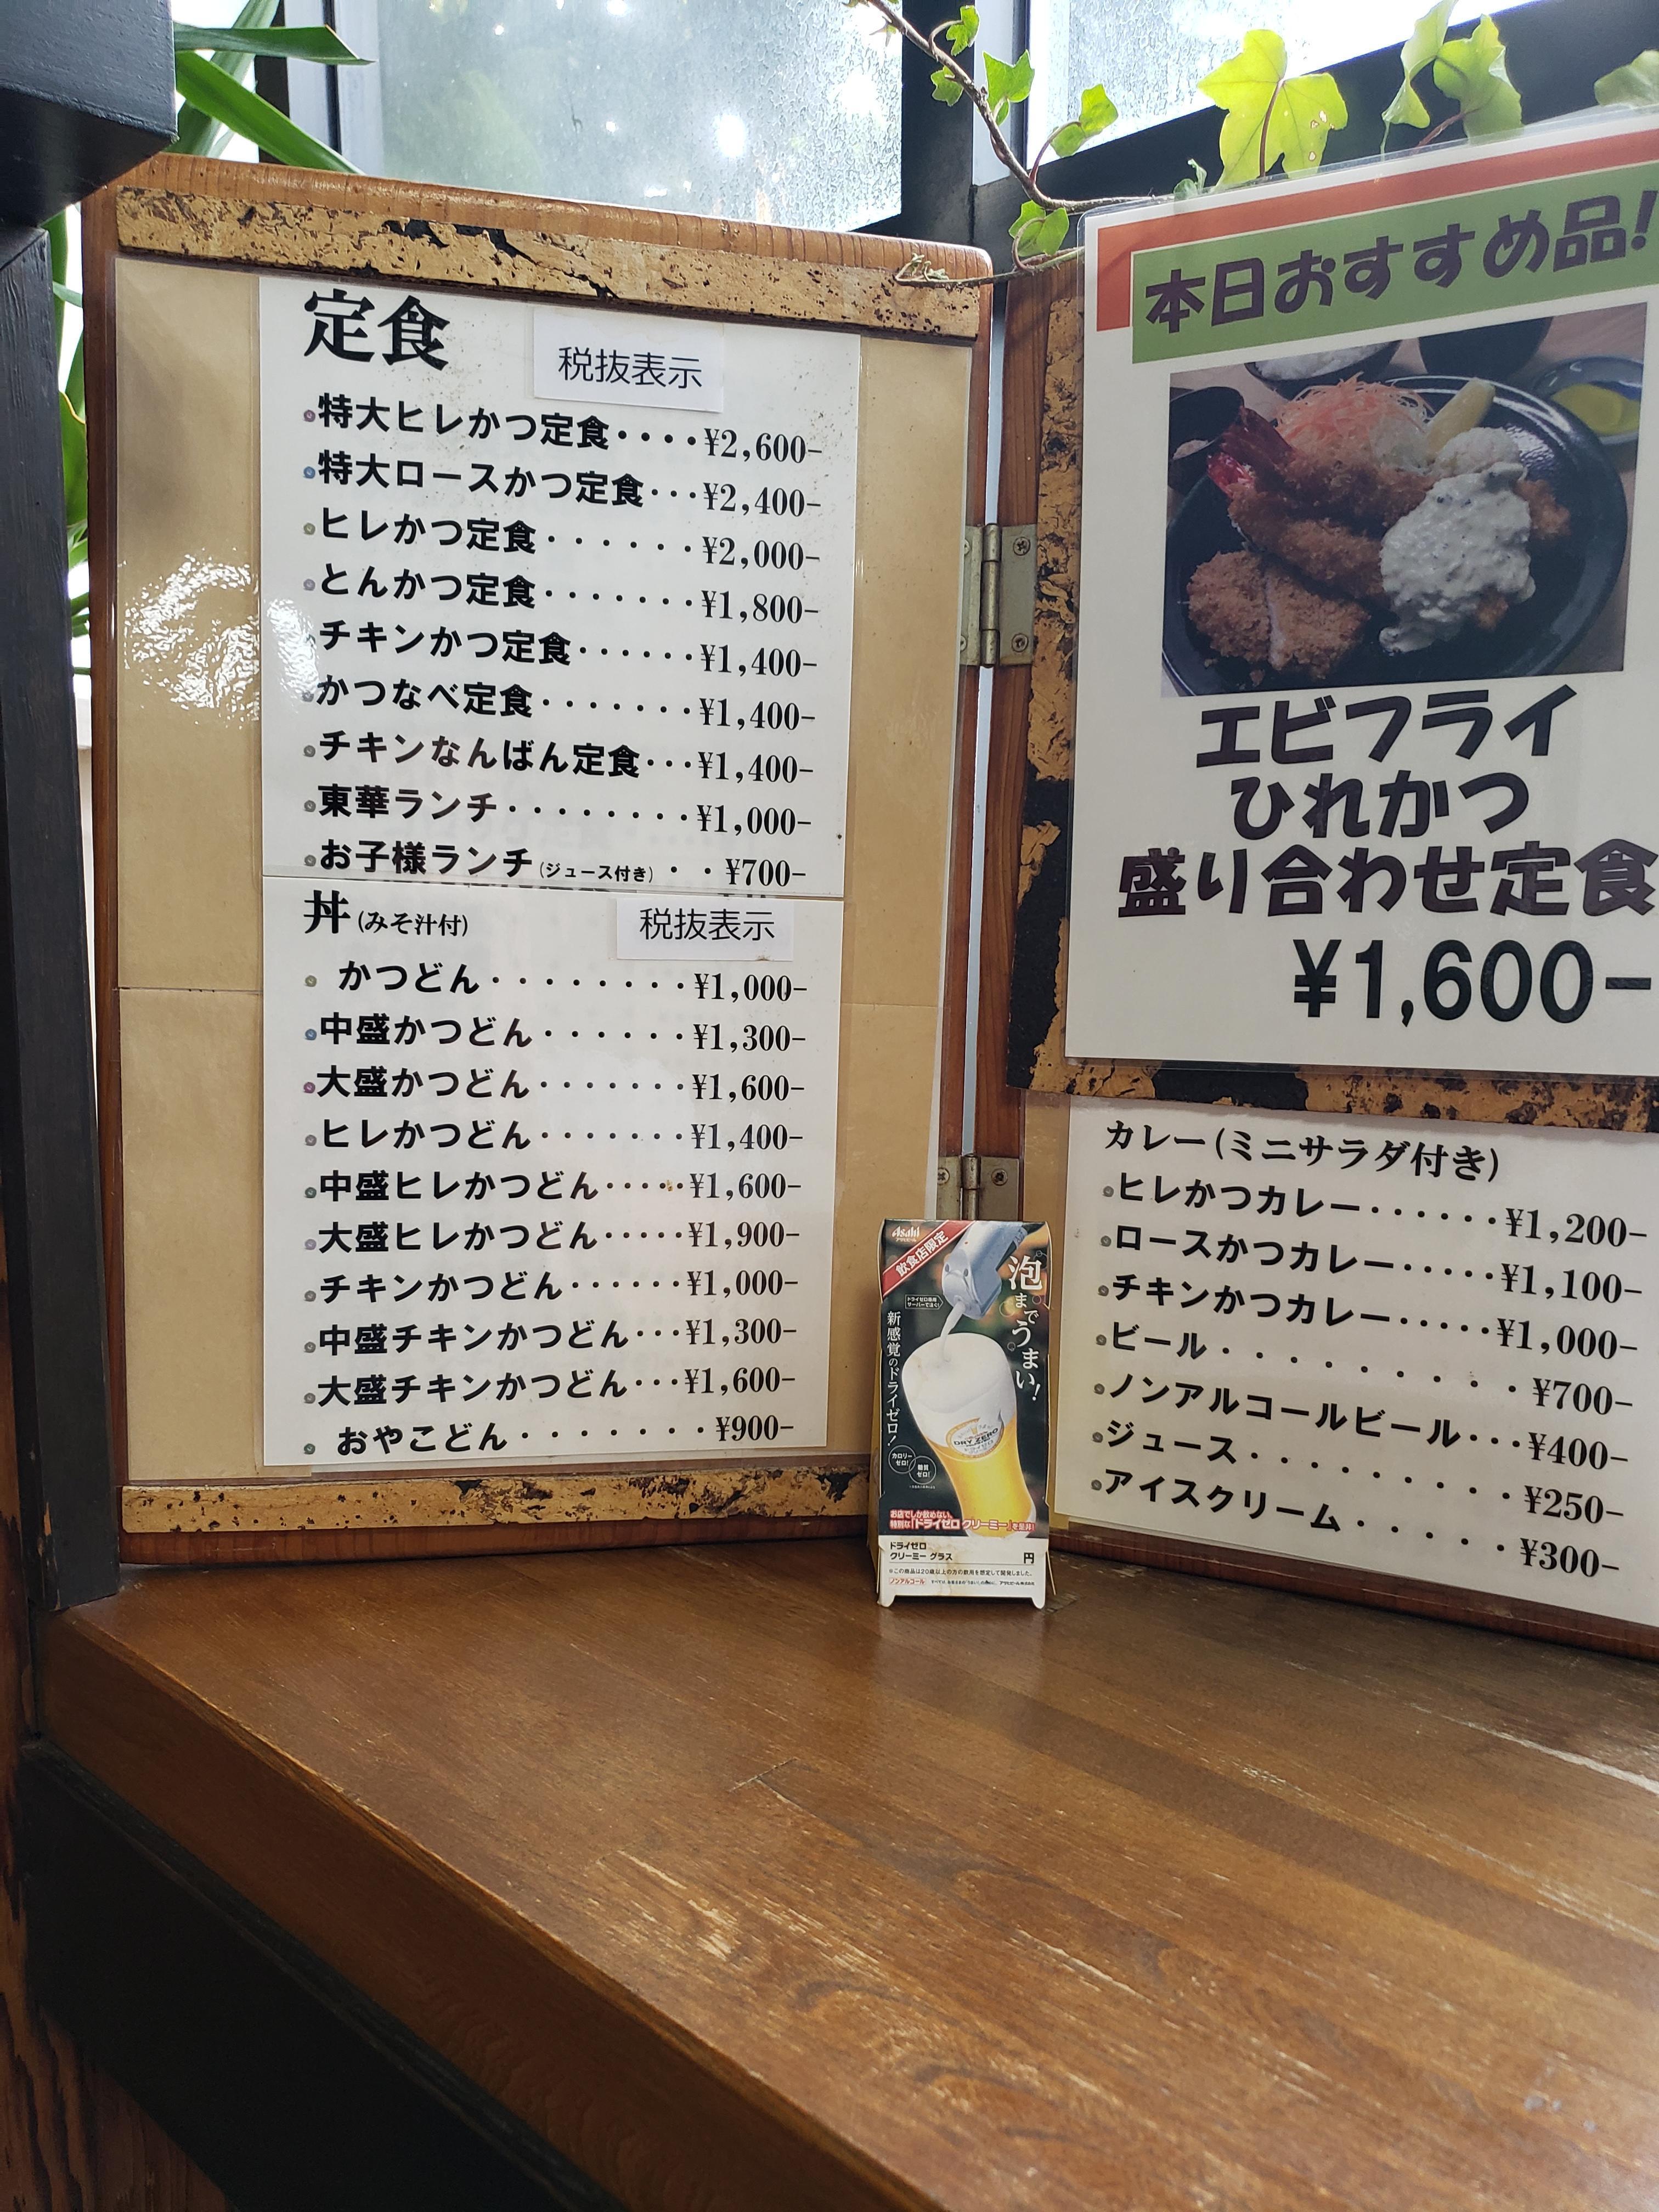 定食
税抜表示
特大ヒレかつ定食・・・・¥2,600-
特大ロースかつ定食・・・¥2,400-
ヒレかつ定食・・・・・・¥2,000-
とんかつ定食・・・・・・・¥1,800-
チキンかつ定食・・・・・・¥1,400-
かつなべ定食・・・・・・・¥1,400-
チキンなんばん定食・・・¥1,400-
東華ランチ・・・・・・・・¥1,000-
お子様ランチ(ジュース付き)・・¥700-
丼(みそ汁付)
税抜表示
かつどん・・・・・・・・¥1,000-
中盛かつどん・・・・・・¥1,300-
大盛かつどん・・・・・・・¥1,600-
ヒレかつどん・・・・・・・¥1,400-
中盛ヒレかつどん・・・・・¥1,600-
大盛ヒレかつどん・・・・・¥1,900-
チキンかつどん・・・・・・¥1,000-
中盛チキンかつどん・・・¥1,300-
大盛チキンかつどん・・・¥1,600-
おやこどん・・・・・・・¥900-
本日おすすめ品!
エビフライ
ひれかつ
盛り合わせ定食
¥1,600-
カレー(ミニサラダ付き)
ヒレかつカレー・・・・・・¥1,200-
ロースかつカレー・・・・・¥1,100-
チキンかつカレー・・・・・¥1,000-
ビール・・・・・・・・・¥700-
ノンアルコールビール・・・¥400-
ジュース・・・・・・・・¥250-
アイスクリーム・・・・・¥300-
Asahi
アサヒビール
飲食店限定
泡までうまい!
新感覚のドライゼロ!
カロリーゼロ!
糖質ゼロ!
DRY ZERO
お店でしか飲めない、
特別な「ドライゼロ クリーミー」を是非!
ドライゼロ
クリーミー グラス 円
※この商品は20歳以上の方の飲用を想定して開発しました。
ノンアルコール